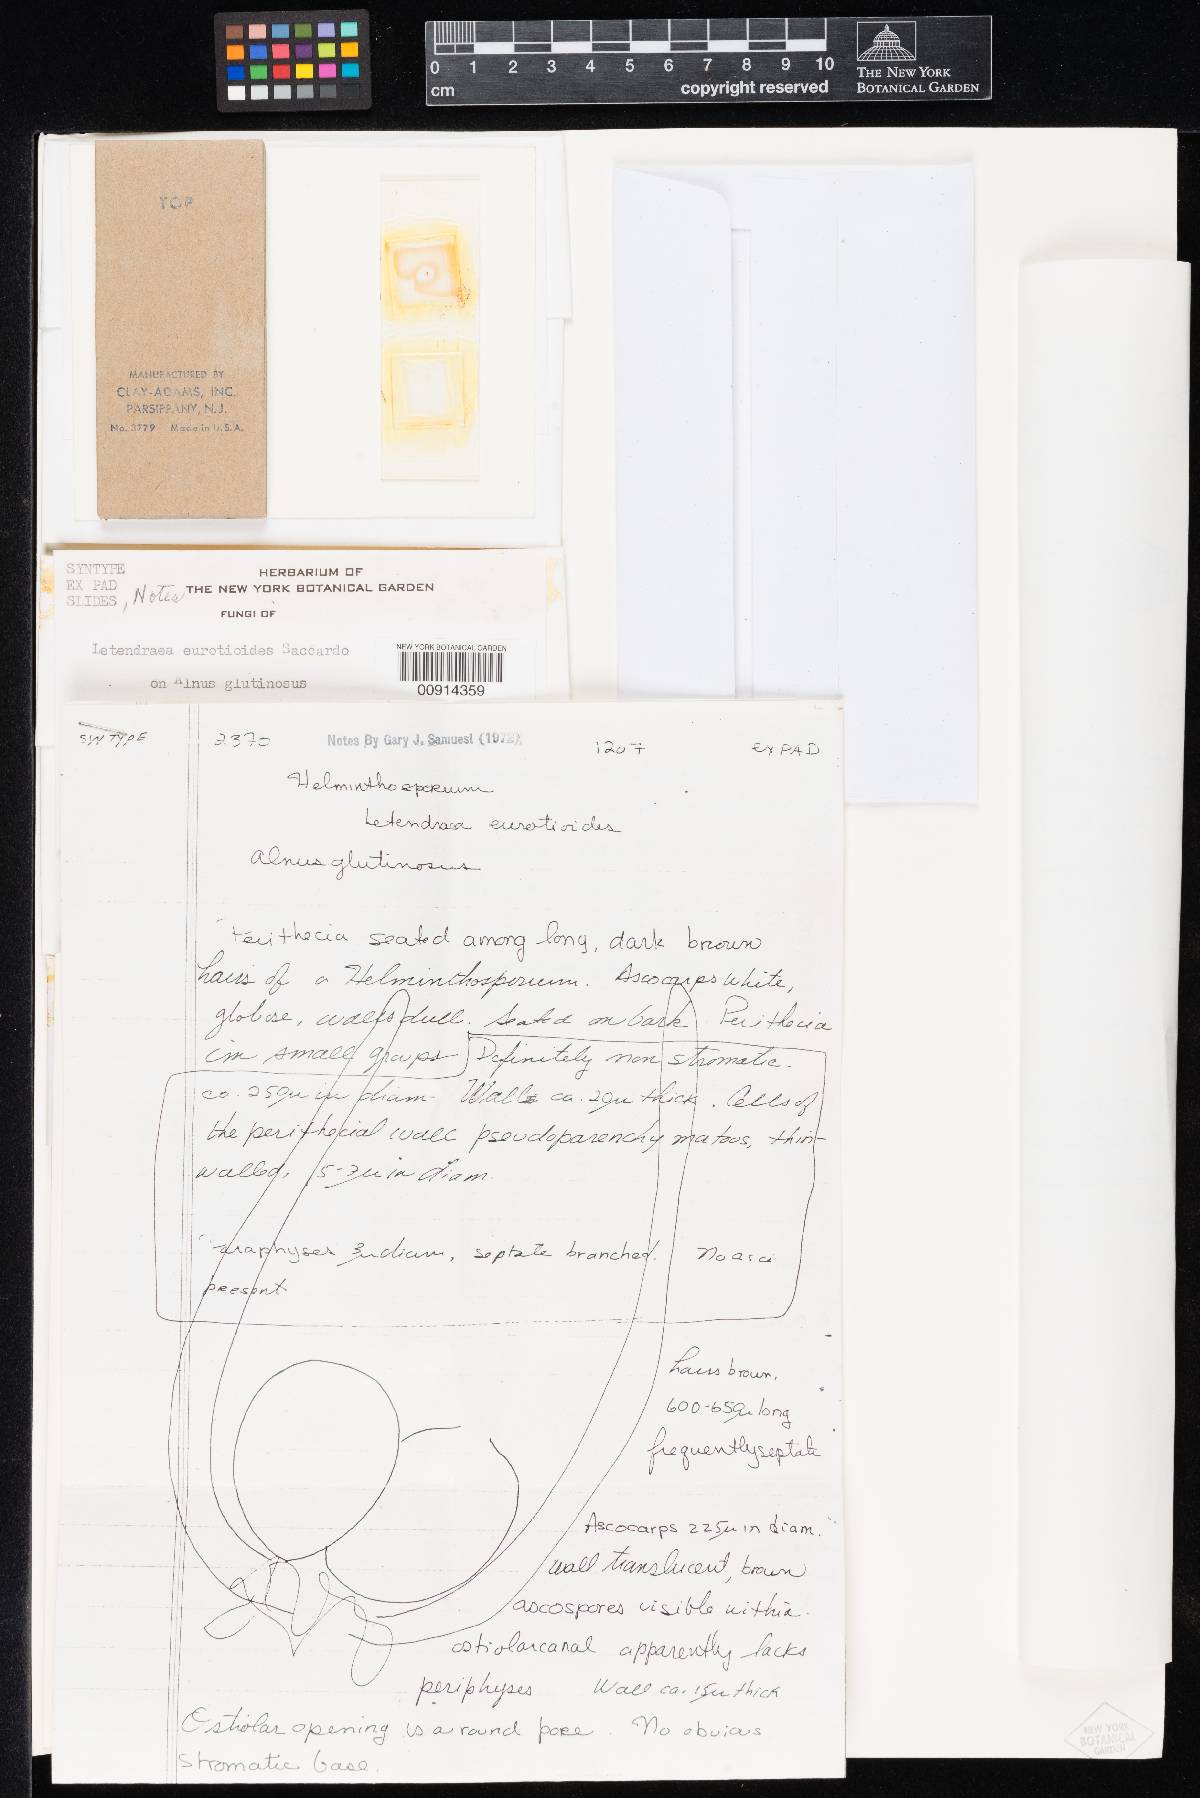 0 1 2 3 4 5 6 7 8 9 10
cm
copyright reserved
THE NEW YORK
BOTANICAL GARDEN
TOP
MANUFACTURED BY
CLAY-ADAMS, INC.
PARSIPPANY, N.J.
No. 3779 Made in U.S.A.
SYNTYPE
EX PAD
SLIDES, Notes
HERBARIUM OF
THE NEW YORK BOTANICAL GARDEN
FUNGI OF
Letendraea eurotioides Saccardo
on Alnus glutinosus
NEW YORK BOTANICAL GARDEN
00914359
SYNTYPE
2370
Notes By Gary J. Samuesl (1972)
1207
EX PAD
Helminthosporium
Letendraea eurotioides
Alnus glutinosus
Perithecia seated among long, dark brown
hairs of a Helminthosporium. Ascocarps white,
globose, walls dull. Seated on bark. Perithecia
in small groups Definitely non stromatic.
ca. 250µ in diam. Walls ca. 20µ thick. Cells of
the perithecial wall pseudoparenchymatous, thin-
walled, 5-7µ in diam.
Paraphyses 3µ diam, septate branched. No asci
present
hairs brown,
600-650µ long
frequently septate
Ascocarps 225µ in diam.
wall translucent, brown
ascospores visible within.
ostiolar canal apparently lacks
periphyses Wall ca. 15µ thick
Ostiolar opening is a round pore. No obvious
stromatic base.
NEW YORK
BOTANICAL
GARDEN